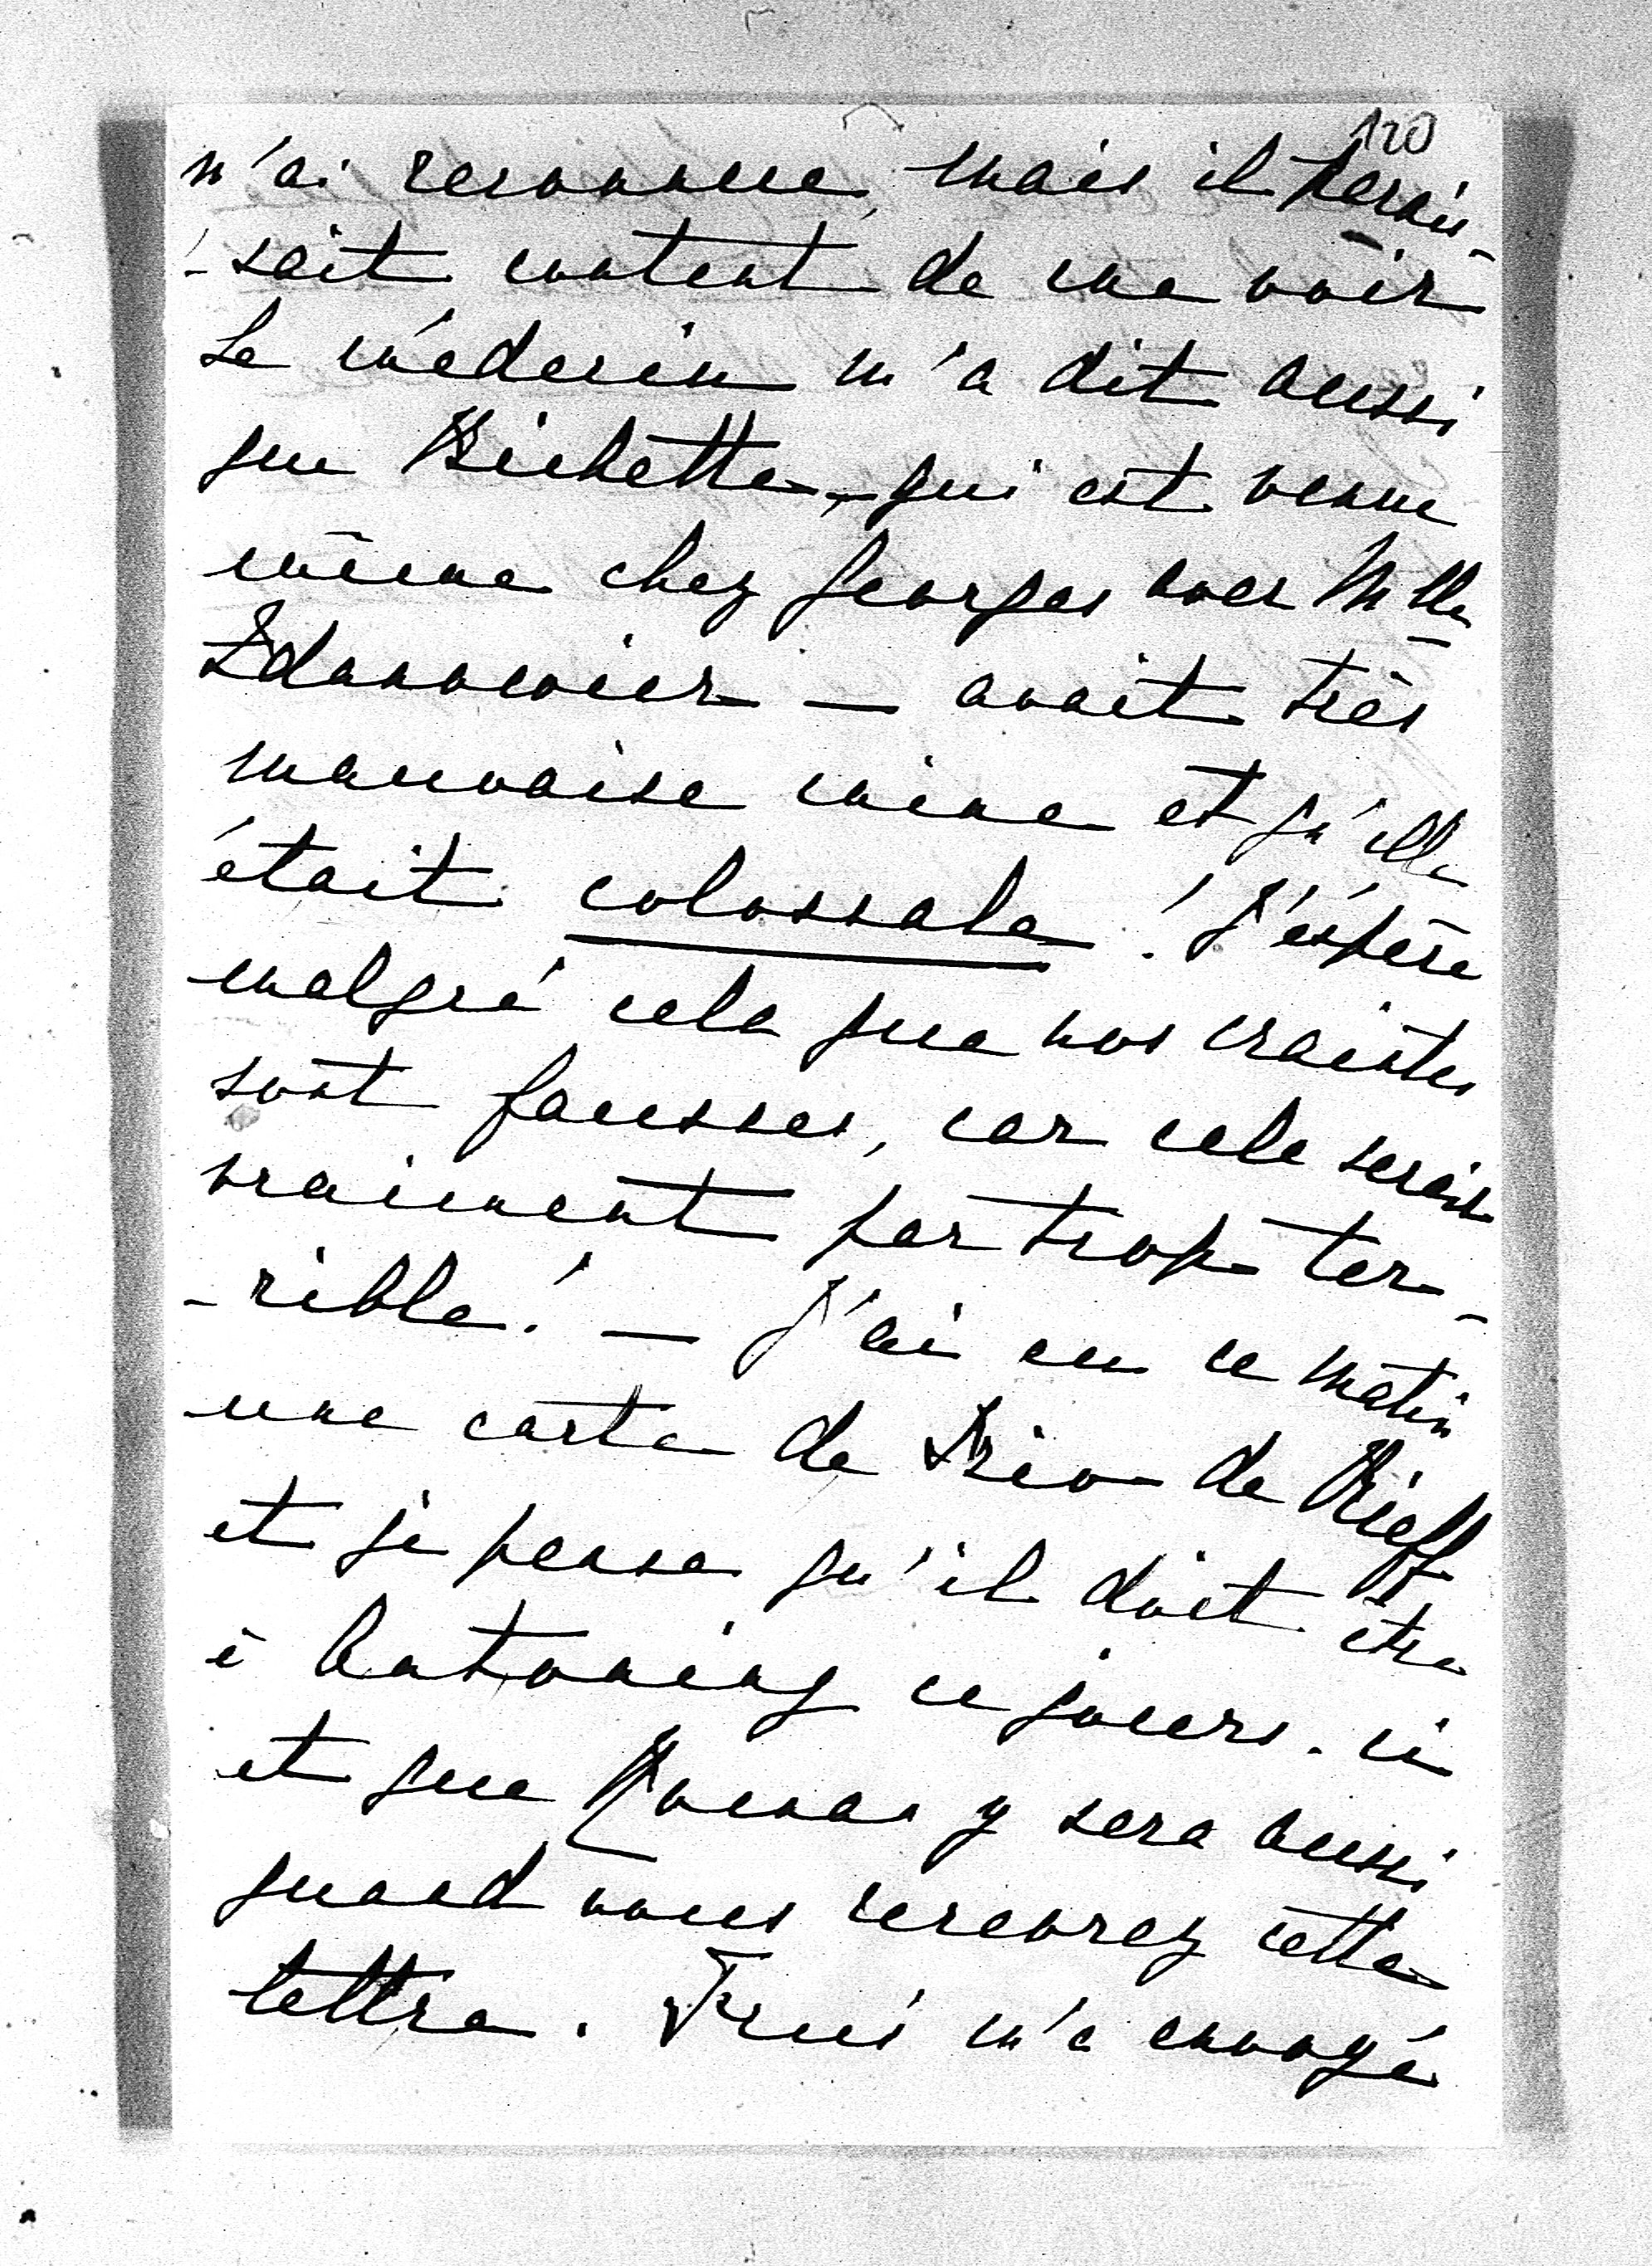 120
m'ai reconnue, mais il parais-
-sait content de me voir
Le médecin m'a dit aussi
que Bichette – qui est venue
même chez Georges avec Mlle
– avait très
mauvaise mine et qu'elle
était colossale ! J'éspère
malgré cela que nos craintes
sont fausses, car cela serait
vraiment par trop ter-
-rible ! — J'ai eu ce matin
une carte de de Kieff
et je pense qu'il doit être
à Antoniny ce jours-ci
et que y sera aussi
quand vous recevrez cette
lettre. m'a envoyé